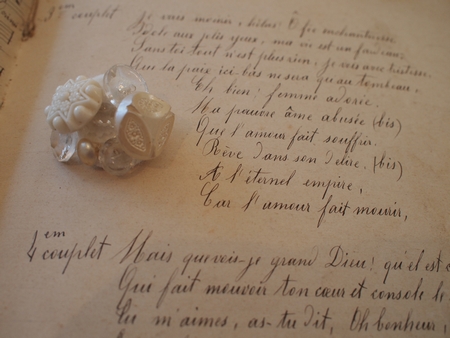 3em couplet Je vais mourir, hélas! O fée enchanteresse
Idole aux plus yeux, ma vie est un fardeau
Sans toi tout n'est plus rien, je vis avec tristesse
Que la paix ici bas ne sera qu'au tombeau,
Eh bien! femme adorée.
Ma pauvre âme abusée (bis)
Qui l'amour fait souffrir.
Rêve dans son délire (bis)
A l'éternel empire,
Car l'amour fait mourir,
4em couplet Mais que vois-je grand Dieu! qu'el est c
Qui fait mouvoir ton cœur et console le
Tu m'aimes, as-tu dit, Oh bonheur,